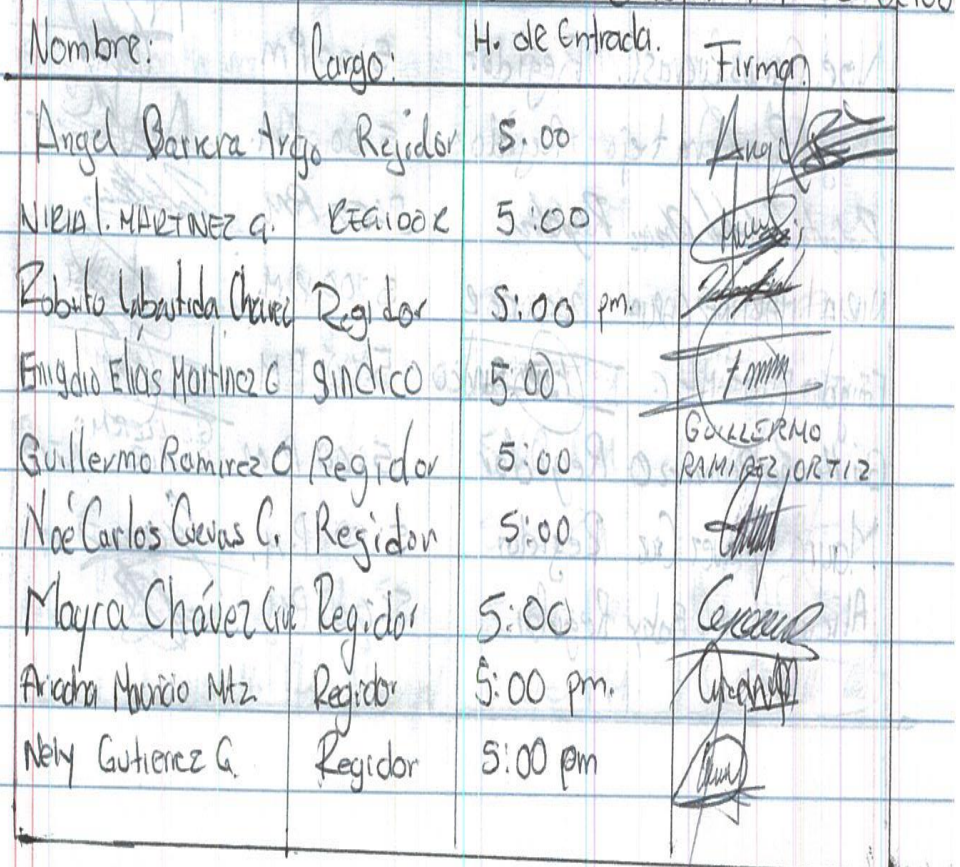 Nombre: Cargo: H. de Entrada. Firman
Angel Barrera Arejo Rejidor 5.00 Angel
NIRIA I. MARTINEZ G. REGIDOR 5:00
Roberto Labastida Chávez Regidor 5:00 pm.
Emigdio Elías Martinez G Sindico 5:00
Guillermo Ramirez O Regidor 5:00 GUILLERMO
RAMIREZ ORTIZ
Noé Carlos Cuevas C. Regidor 5:00
Mayra Chávez Cruz Regidor 5:00
Ariadna Mauricio Mtz Regidor 5:00 pm.
Nely Gutierrez G. Regidor 5:00 pm